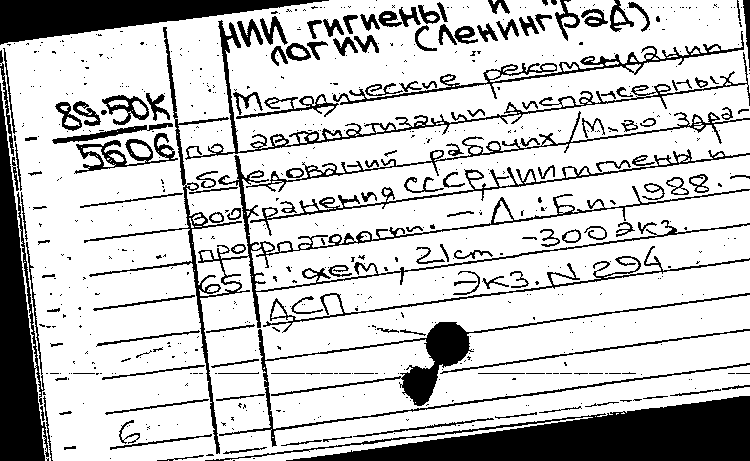 НИИ гигиены и
логии (Ленинград).
89-50К
5606
Методические рекомендации
по автоматизации диспансерных
обследований рабочих / М-во здра-
воохранения СССР, НИИ гигиены и
профпатологии. – Л.: Б.и., 1988. –
65 с. : схем.; 21 см. – 300 экз.
ДСП. Экз. N 294
6